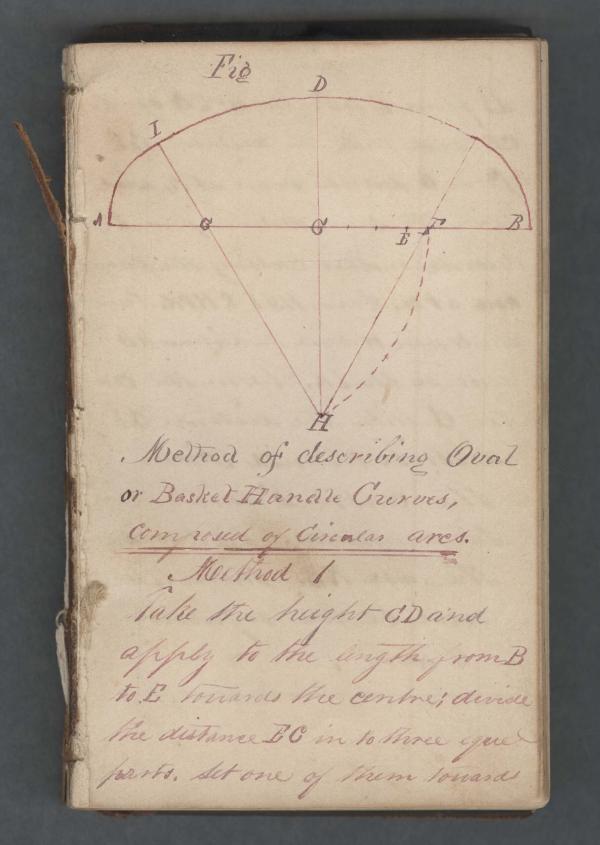 Fig
D
I
A G C E F B
H
Method of describing Oval
or Basket Handle Curves,
composed of Circular arcs.
Method 1
Take the height CD and
apply to the length from B
to E towards the centre; divide
the distance EC in to three equel
parts. Set one of them towards